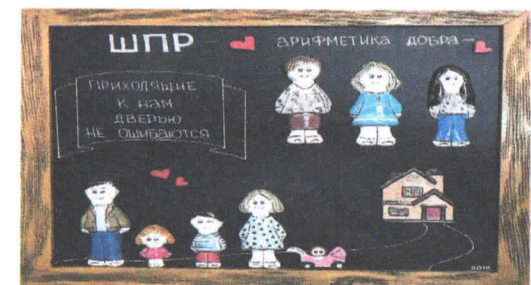 ШПР - АРИФМЕТИКА ДОБРА -
ПРИХОДЯЩИЕ
К НАМ
ДВЕРЬЮ
НЕ ОШИБАЮТСЯ